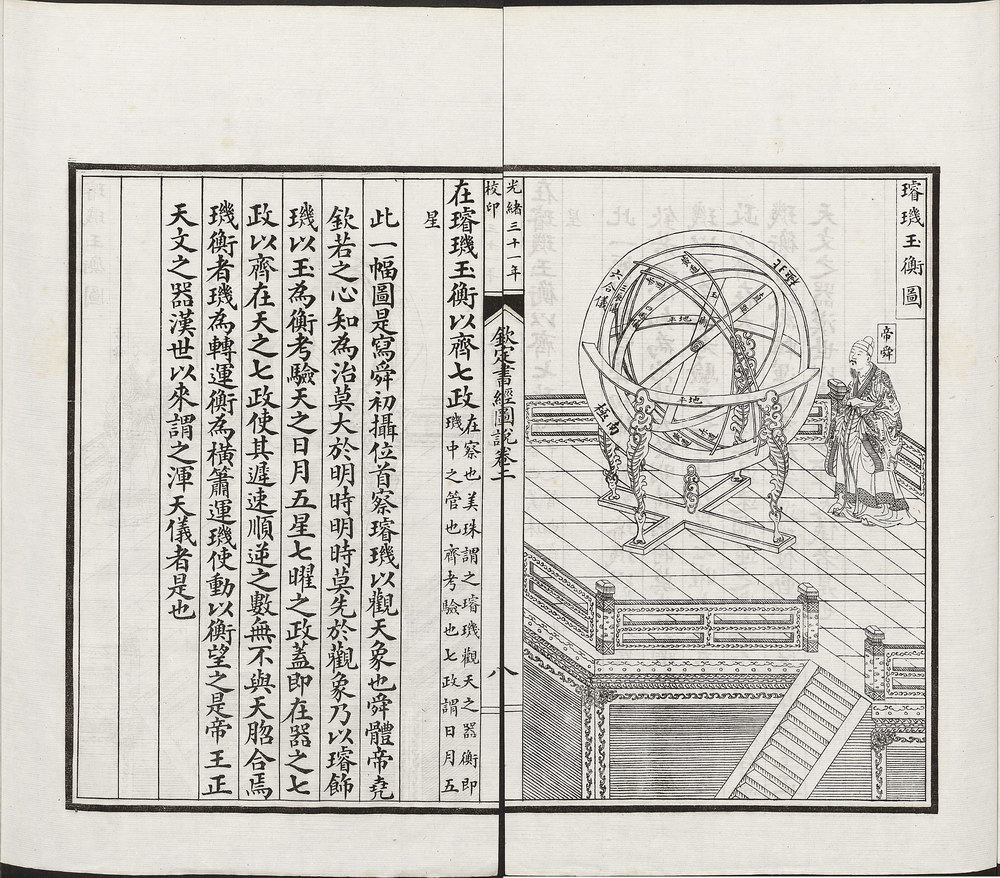 璿璣玉衡圖
帝舜
北極
六合儀
平地
平地
極南
光緒三十一年
校印
欽定書經圖說卷二
八
在璿璣玉衡以齊七政
在察也美珠謂之璿璣觀天之器衡即
璣中之管也齊考驗也七政謂日月五
星
此一幅圖是寫舜初攝位首察璿璣以觀天象也舜體帝堯
欽若之心知為治莫大於明時明時莫先於觀象乃以璿飾
璣以玉為衡考驗天之日月五星七曜之政蓋即在器之七
政以齊在天之七政使其遲速順逆之數無不與天脗合焉
璣衡者璣為轉運衡為橫簫運璣使動以衡望之是帝王正
天文之器漢世以來謂之渾天儀者是也